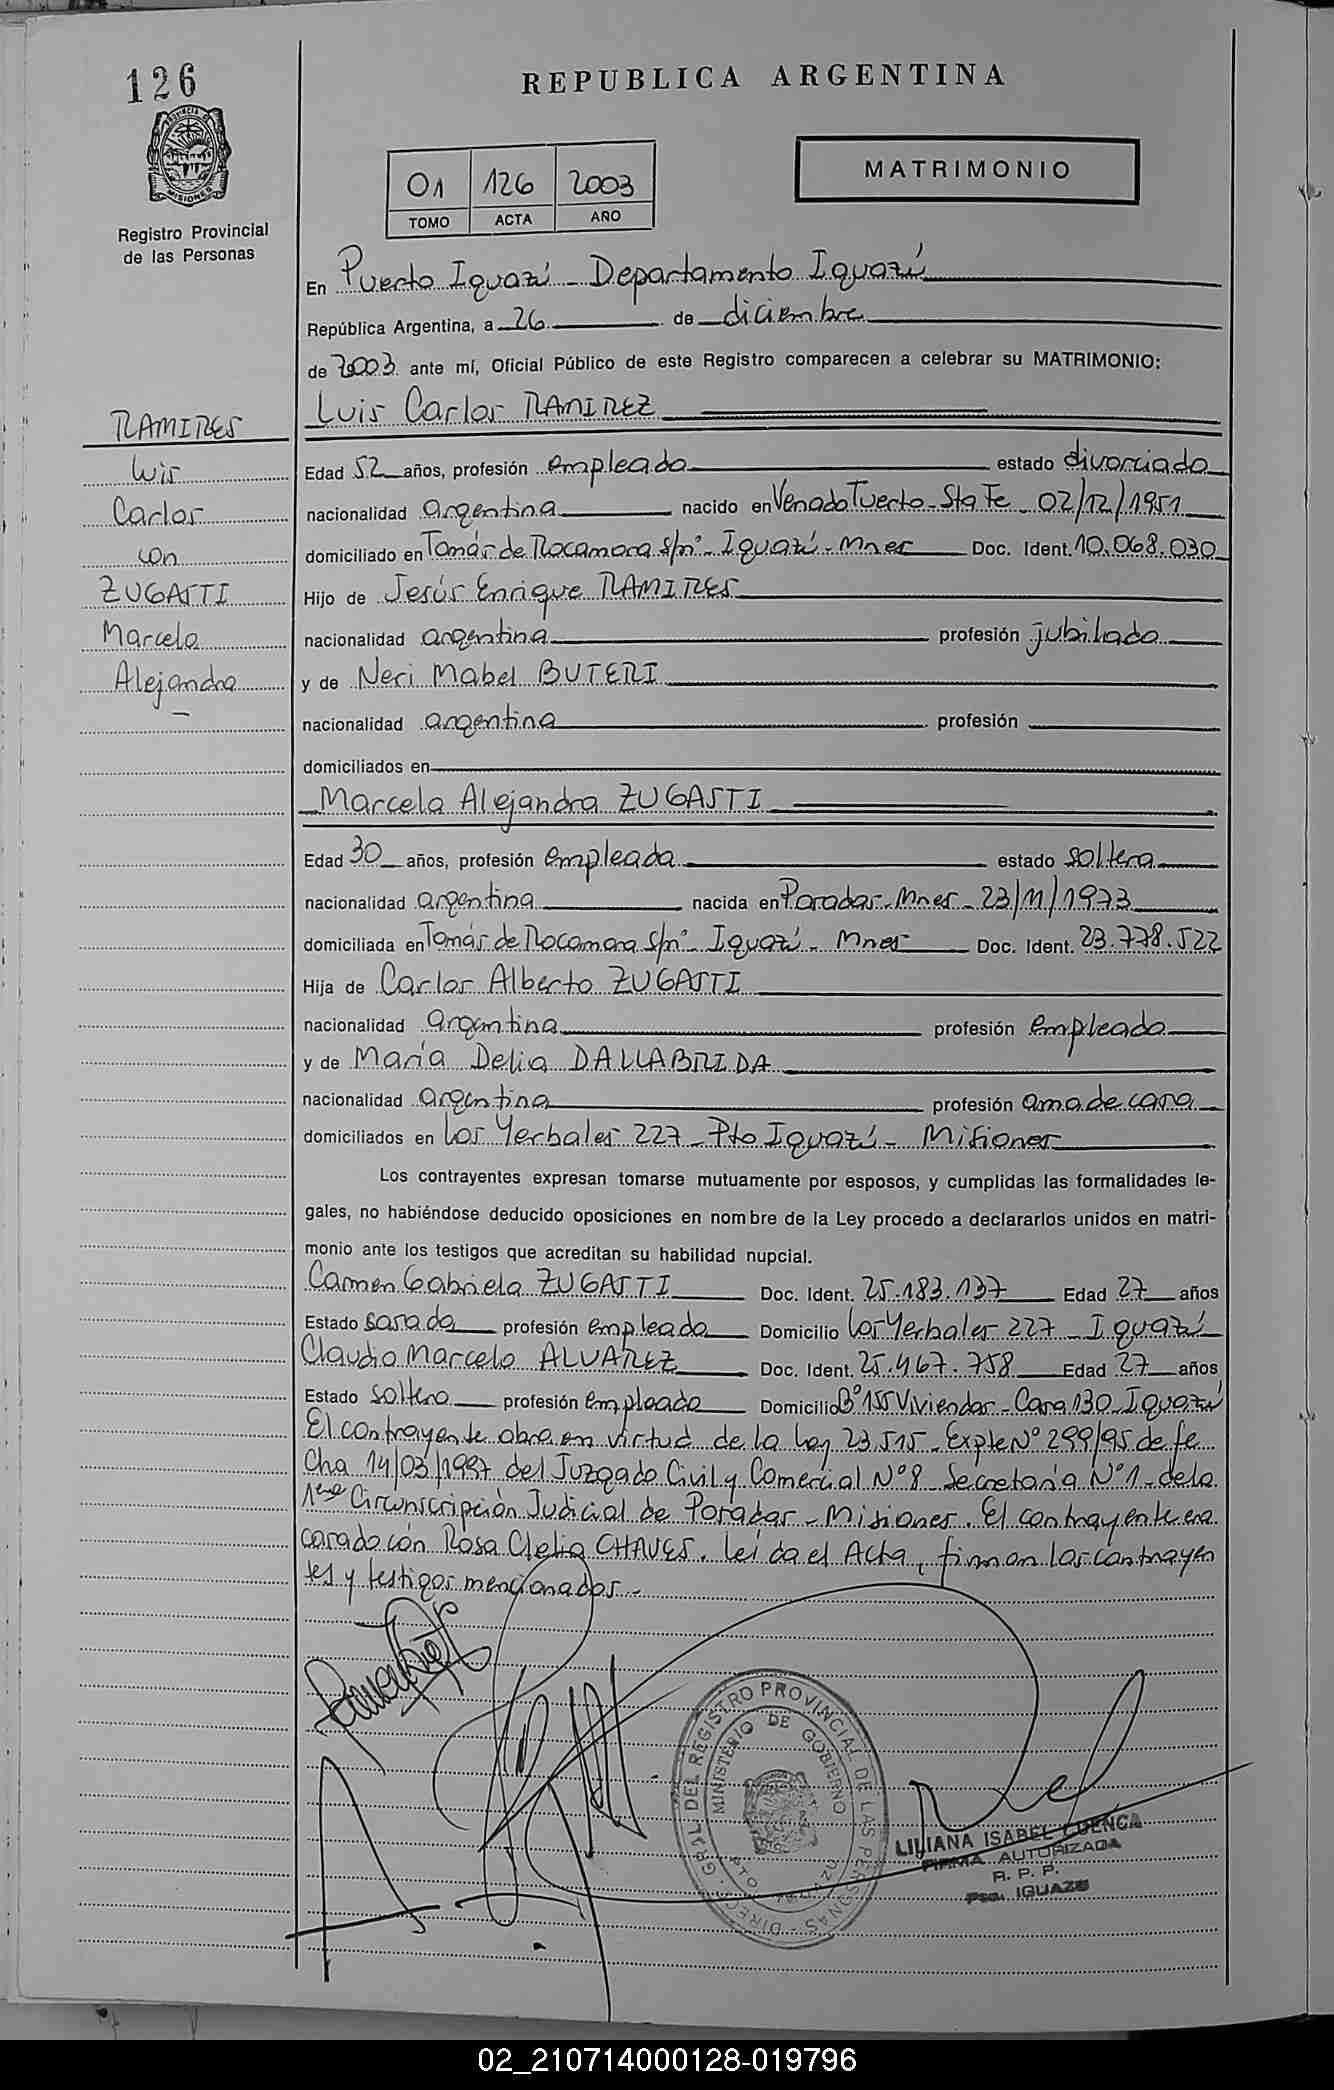 126
REPUBLICA ARGENTINA
PROVINCIA DE
MISIONES
Registro Provincial
de las Personas
01 126 2003
TOMO ACTA AÑO
MATRIMONIO
En Puerto Iguazú - Departamento Iguazú
República Argentina, a 26 de diciembre
de 2003 ante mí, Oficial Público de este Registro comparecen a celebrar su MATRIMONIO:
Luis Carlos RAMIREZ
RAMIRES
Luis
Carlos
con
ZUGASTI
Marcela
Alejandra
Edad 52 años, profesión empleado estado divorciado
nacionalidad argentina nacido en Venado Tuerto - Sta Fe - 02/12/1951
domiciliado en Tomás de Rocamora s/nº - Iguazú - Mnes Doc. Ident. 10.068.030
Hijo de Jesús Enrique RAMIRES
nacionalidad argentina profesión jubilado
y de Neri Mabel BUTERI
nacionalidad argentina profesión
domiciliados en
Marcela Alejandra ZUGASTI
Edad 30 años, profesión empleada estado soltera
nacionalidad argentina nacida en Posadas - Mnes - 23/11/1973
domiciliada en Tomás de Rocamora s/nº - Iguazú - Mnes Doc. Ident. 23.778.522
Hija de Carlos Alberto ZUGASTI
nacionalidad argentina profesión empleado
y de María Delia DALLABRIDA
nacionalidad argentina profesión ama de casa
domiciliados en Los Yerbales 227 - Pto Iguazú - Misiones
Los contrayentes expresan tomarse mutuamente por esposos, y cumplidas las formalidades le-
gales, no habiéndose deducido oposiciones en nombre de la Ley procedo a declararlos unidos en matri-
monio ante los testigos que acreditan su habilidad nupcial.
Carmen Gabriela ZUGASTI Doc. Ident. 25.183.137 Edad 27 años
Estado casada profesión empleada Domicilio Los Yerbales 227 - Iguazú
Claudio Marcelo ALVAREZ Doc. Ident. 25.467.758 Edad 27 años
Estado soltero profesión empleado Domicilio Bº 155 Viviendas - Casa 130 - Iguazú
El contrayente obra en virtud de la Ley 23.515 - Expte Nº 299/95 de fe
cha 14/03/1997 del Juzgado Civil y Comercial Nº 8 Secretaría Nº 1 - de la
1era Circunscripción Judicial de Posadas - Misiones. El contrayente era
casado con Rosa Clelia CHAVES. Leída el Acta, firman los contrayen
tes y testigos mencionados -
DIREC. GRAL DEL REGISTRO PROVINCIAL DE LAS PERSONAS
MINISTERIO DE GOBIERNO
PTO IGUAZU
LILIANA ISABEL CUENCA
FIRMA AUTORIZADA
R. P. P.
Pto. IGUAZU
02_210714000128-019796